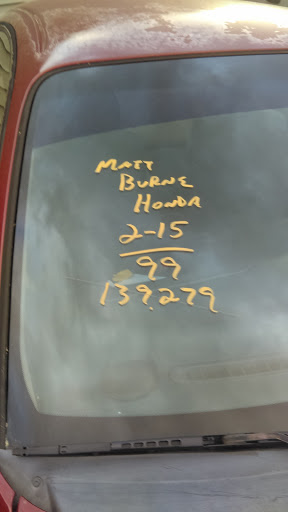 MATT
BURNE
HONDA
2-15
99
139,279